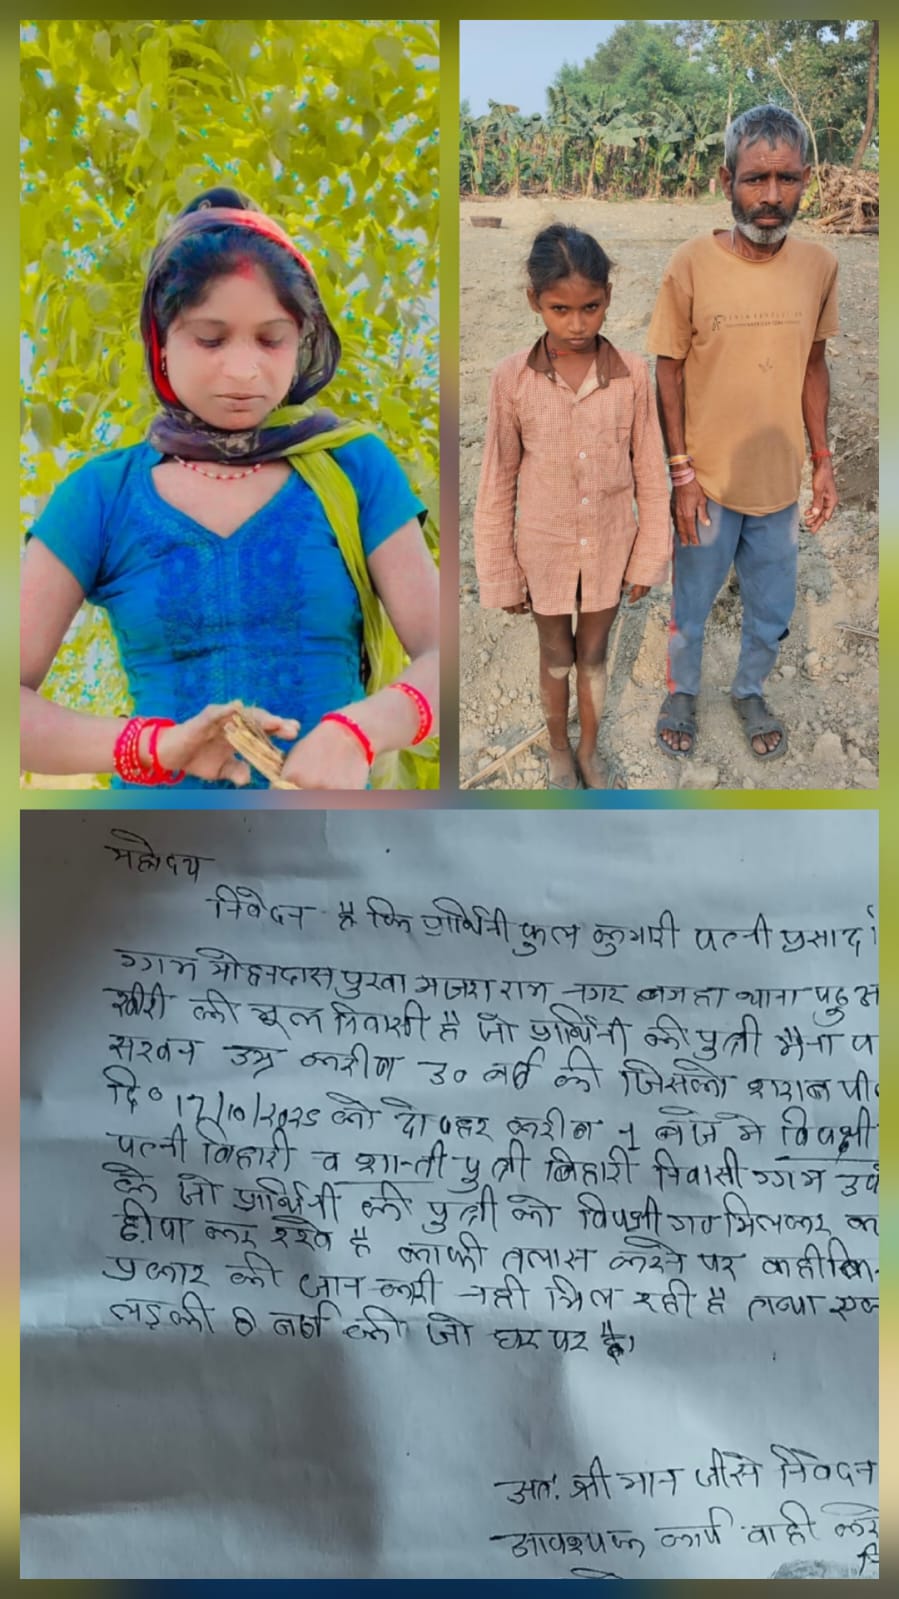 महोदय
निवेदन है कि प्रार्थिनी फुल कुमारी पत्नी प्रसादी
ग्राम मोहनदास पुरवा मजरा राम नगर बगहा थाना पढुआ
खीरी की मूल निवासी है जो प्रार्थिनी की पुत्री मैना प
सरवन उम्र करीब 30 वर्ष की जिसको शराब पी
दि० 17/10/2025 को दोपहर करीब 1 बजे मे विपक्षी
पत्नी बिहारी व शान्ती पुत्री बिहारी निवासी ग्राम उप
के जो प्रार्थिनी की पुत्री को विपक्षी गण मिलकर क
कर रखे है काफी तलास करने पर कही कि
प्रकार की जान करी नही मिल रही है तथा एक
लड़की 8 वर्ष की जो घर पर है।
अतः श्री मान जी से निवेदन
आवश्यक कार्य वाही करे